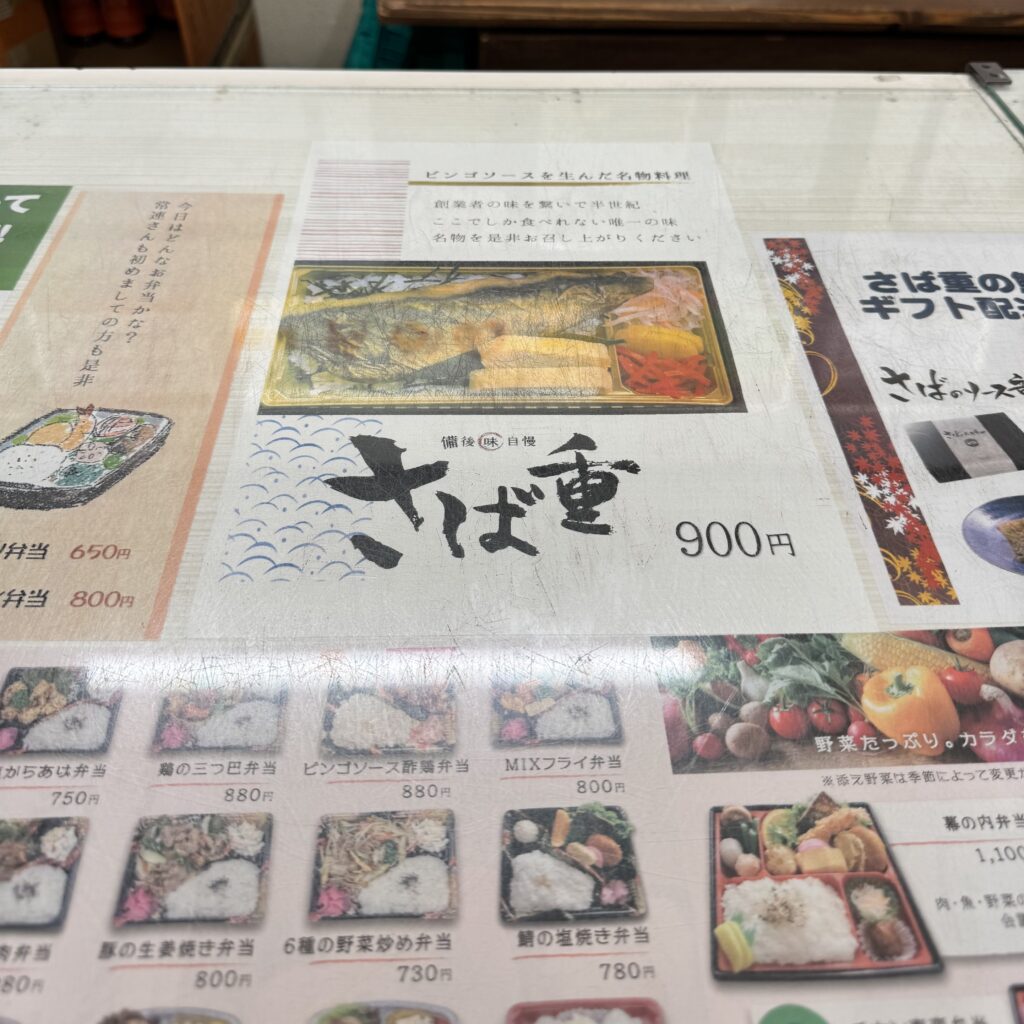 今日はどんなお弁当かな？
常連さんも初めましての方も是非
弁当 650円
弁当 800円
ビンゴソースを生んだ名物料理
創業者の味を繋いで半世紀、
ここでしか食べれない唯一の味
名物を是非お召し上がりください
備後味自慢
さば重
900円
さば重の
ギフト配
さばのソース
からあげ弁当
750円
鶏の三つ巴弁当
880円
ビンゴソース酢鶏弁当
880円
MIXフライ弁当
800円
野菜たっぷり。カラダ
※添え野菜は季節によって変更
弁当
80円
豚の生姜焼き弁当
800円
6種の野菜炒め弁当
730円
鯖の塩焼き弁当
780円
幕の内弁当
1,100
肉・魚・野菜の